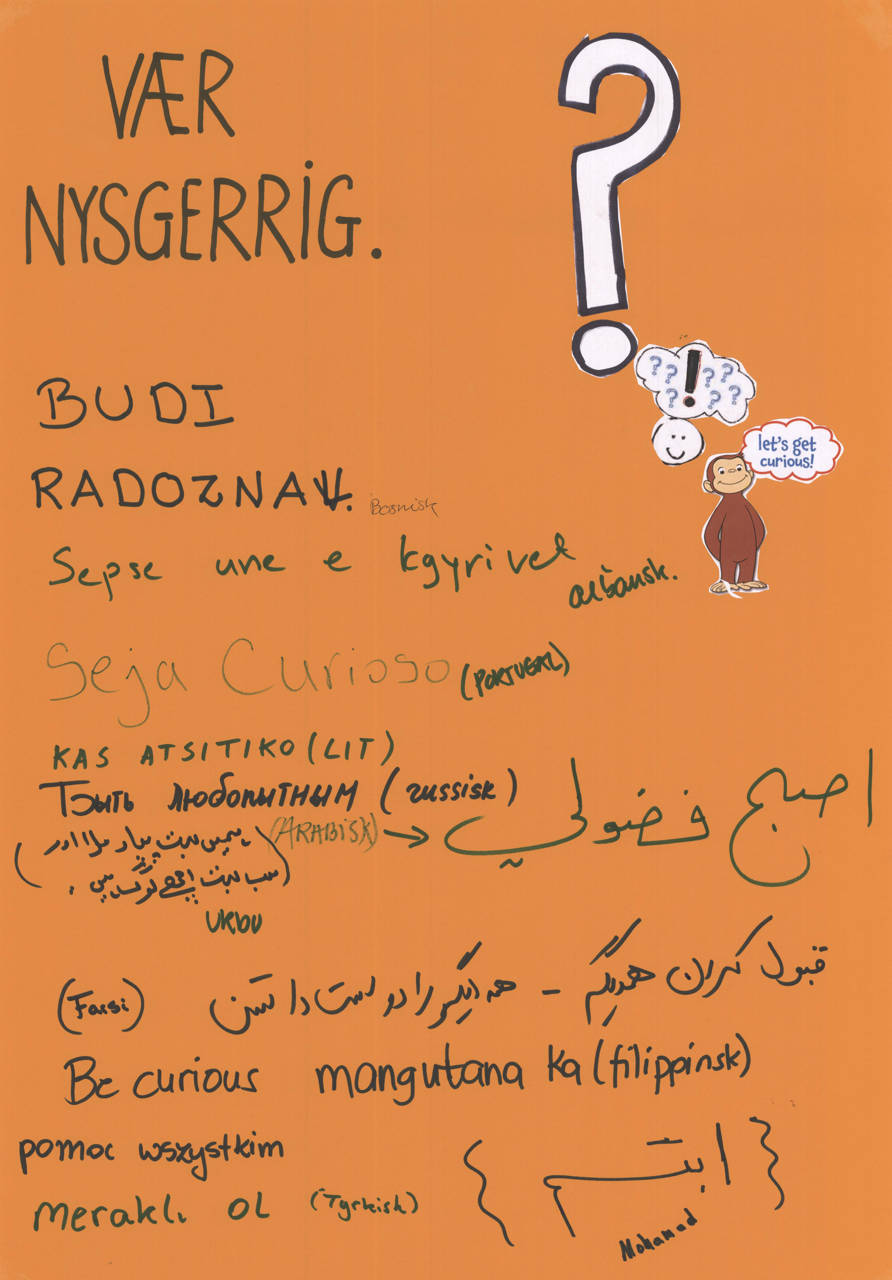 VÆR
NYSGERRIG.
?
?? ! ??
? ??
let's get
curious!
BUDI
RADOZNAW.
Bosnisk
Sepse une e kgyrivet
albansk.
Seja Curioso (PORTUGAL)
KAS ATSITIKO (LIT)
Быть любопытным (russisk)
(ARABISK) → اصبح فضولي
قبول کردن همدیگر - همدیگر را دوست داشتن (Farsi)
Be curious mangutana ka (filippinsk)
pomoc wszystkim
{ ابتسم }
Mohamad
meraklı OL (Tyrkisk)